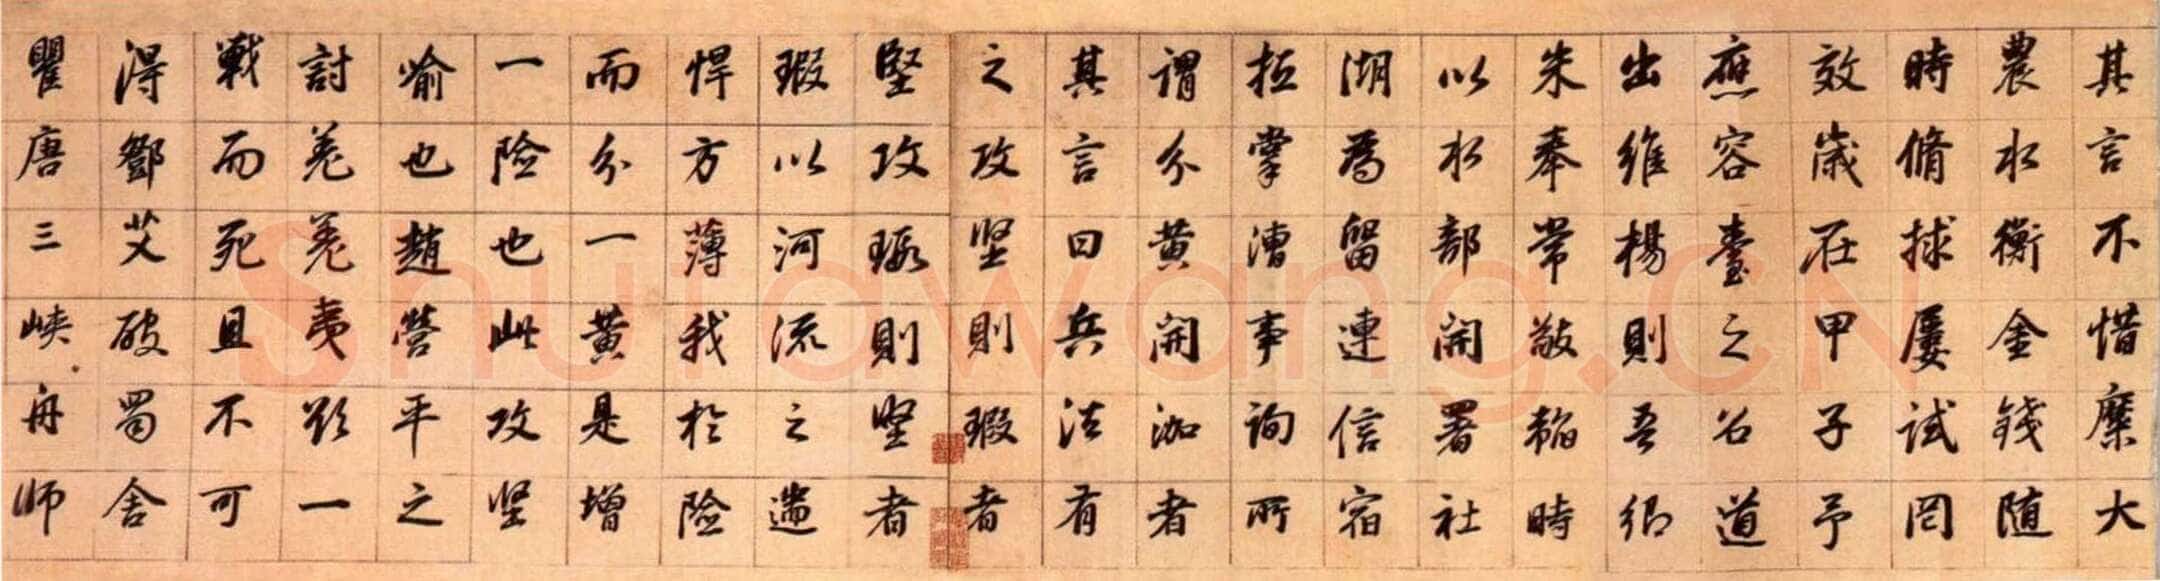 其言不惜糜大
農水衡金錢隨
時脩捄屢試罔
效歲在甲子予
應容臺之召道
出維楊則吾鄉
朱奉常敬韜時
以水部開署社
湖為留連信宿
抵掌漕事詢所
謂分黄開泇者
其言曰兵法有
之攻堅則瑕者
堅攻瑕則堅者
瑕以河流之遄
悍方薄我於險
而分一黄是增
一險也此攻堅
喻也趙營平之
討羌羌夷欵一
戰而死且不可
得鄧艾破蜀舍
瞿唐三峽舟師
Shufawang.CN